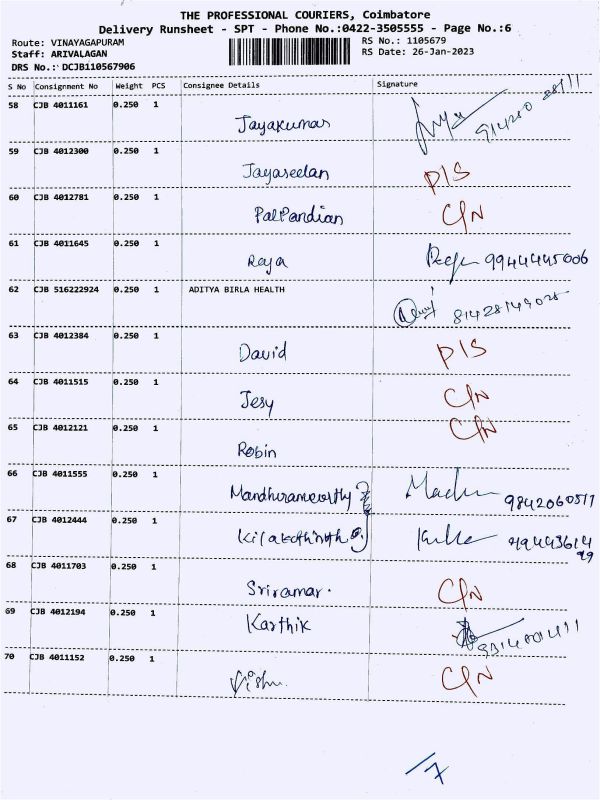 THE PROFESSIONAL COURIERS, Coimbatore
Delivery Runsheet - SPT - Phone No.:0422-3505555 - Page No.:6
Route: VINAYAGAPURAM RS No.: 1105679
Staff: ARIVALAGAN RS Date: 26-Jan-2023
DRS No.: DCJB110567906
S No Consignment No Weight PCS Consignee Details Signature
58 CJB 4011161 0.250 1
Jayakumar
59 CJB 4012300 0.250 1
Jayaseelan P/S
60 CJB 4012781 0.250 1
PalPandian C/N
61 CJB 4011645 0.250 1
Raja 9944445006
62 CJB 516222924 0.250 1 ADITYA BIRLA HEALTH
63 CJB 4012384 0.250 1
David P/S
64 CJB 4011515 0.250 1
Jesy C/N
65 CJB 4012121 0.250 1 C/N
Robin
66 CJB 4011555 0.250 1
9842060517
67 CJB 4012444 0.250 1
68 CJB 4011703 0.250 1
Sriramar. C/N
69 CJB 4012194 0.250 1
Karthik
70 CJB 4011152 0.250 1
Vishnu. C/N